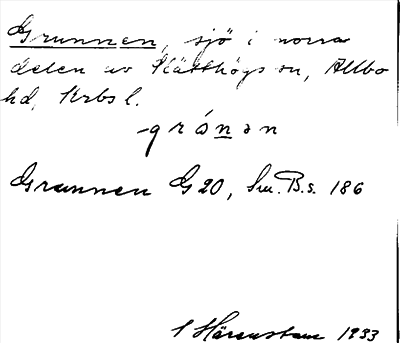 Grunnen, sjö i norra
delen av Slätthögs sn, Allbo
hd, Krbs l.
-grónən
Grunnen G 20, Sm. B.s. 186
S Härenstam 1933